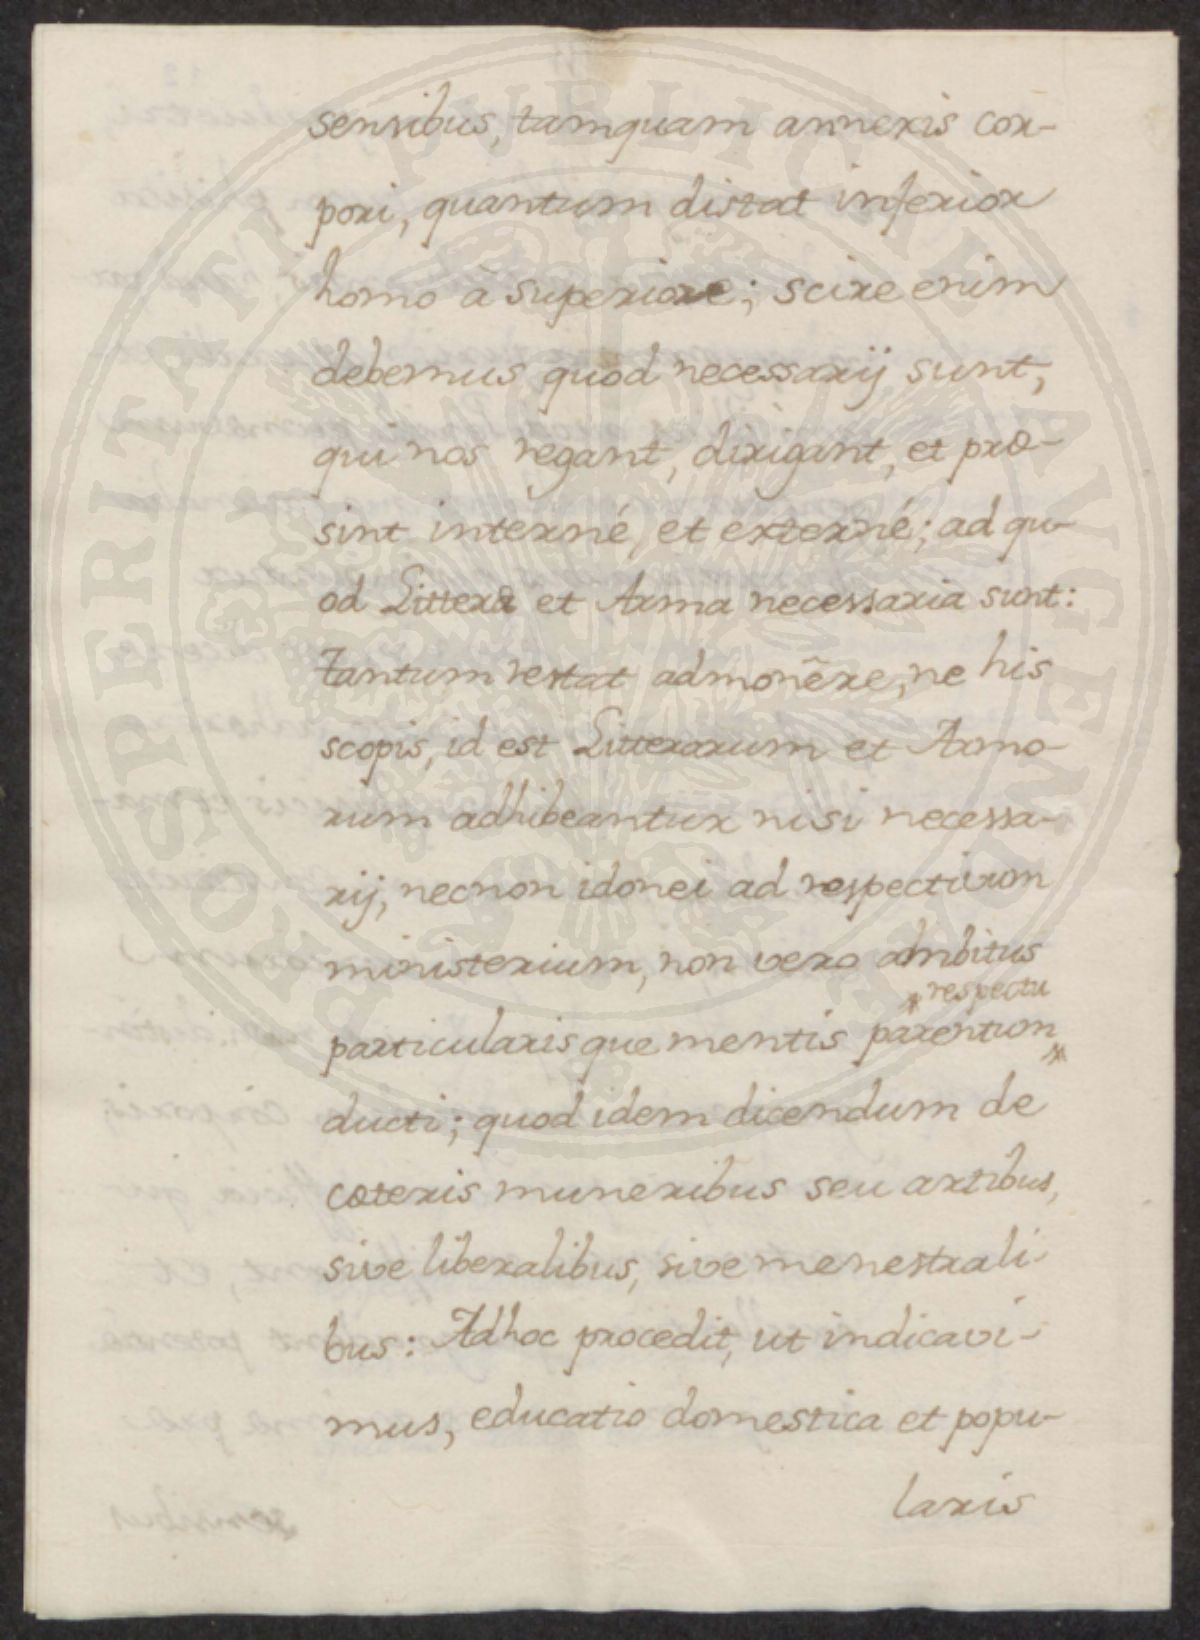 sensibus, tamquam annexis cor-
pori, quantum distat inferior
homo à superiore; scire enim
debemus quod necessarij sunt,
qui nos regant, dirigant, et præ-
sint interné, et externé; ad qu-
od Litteræ et Arma necessaria sunt:
Tantum restat admonẽre, ne his
scopis, id est Litterarum et Armo-
rum adhibeantur nisi necessa-
rij, necnon idonei ad respectivum
ministerium, non vero ambitus
* respectu
particularisque mentis parentum *
ducti; quod idem dicendum de
cæteris muneribus seu artibus,
sive liberalibus, sive menestrali-
bus: Adhoc procedit, ut indicavi-
mus, educatio domestica et popu-
laris
PROSPERITATI PVBLICAE AVGENDAE